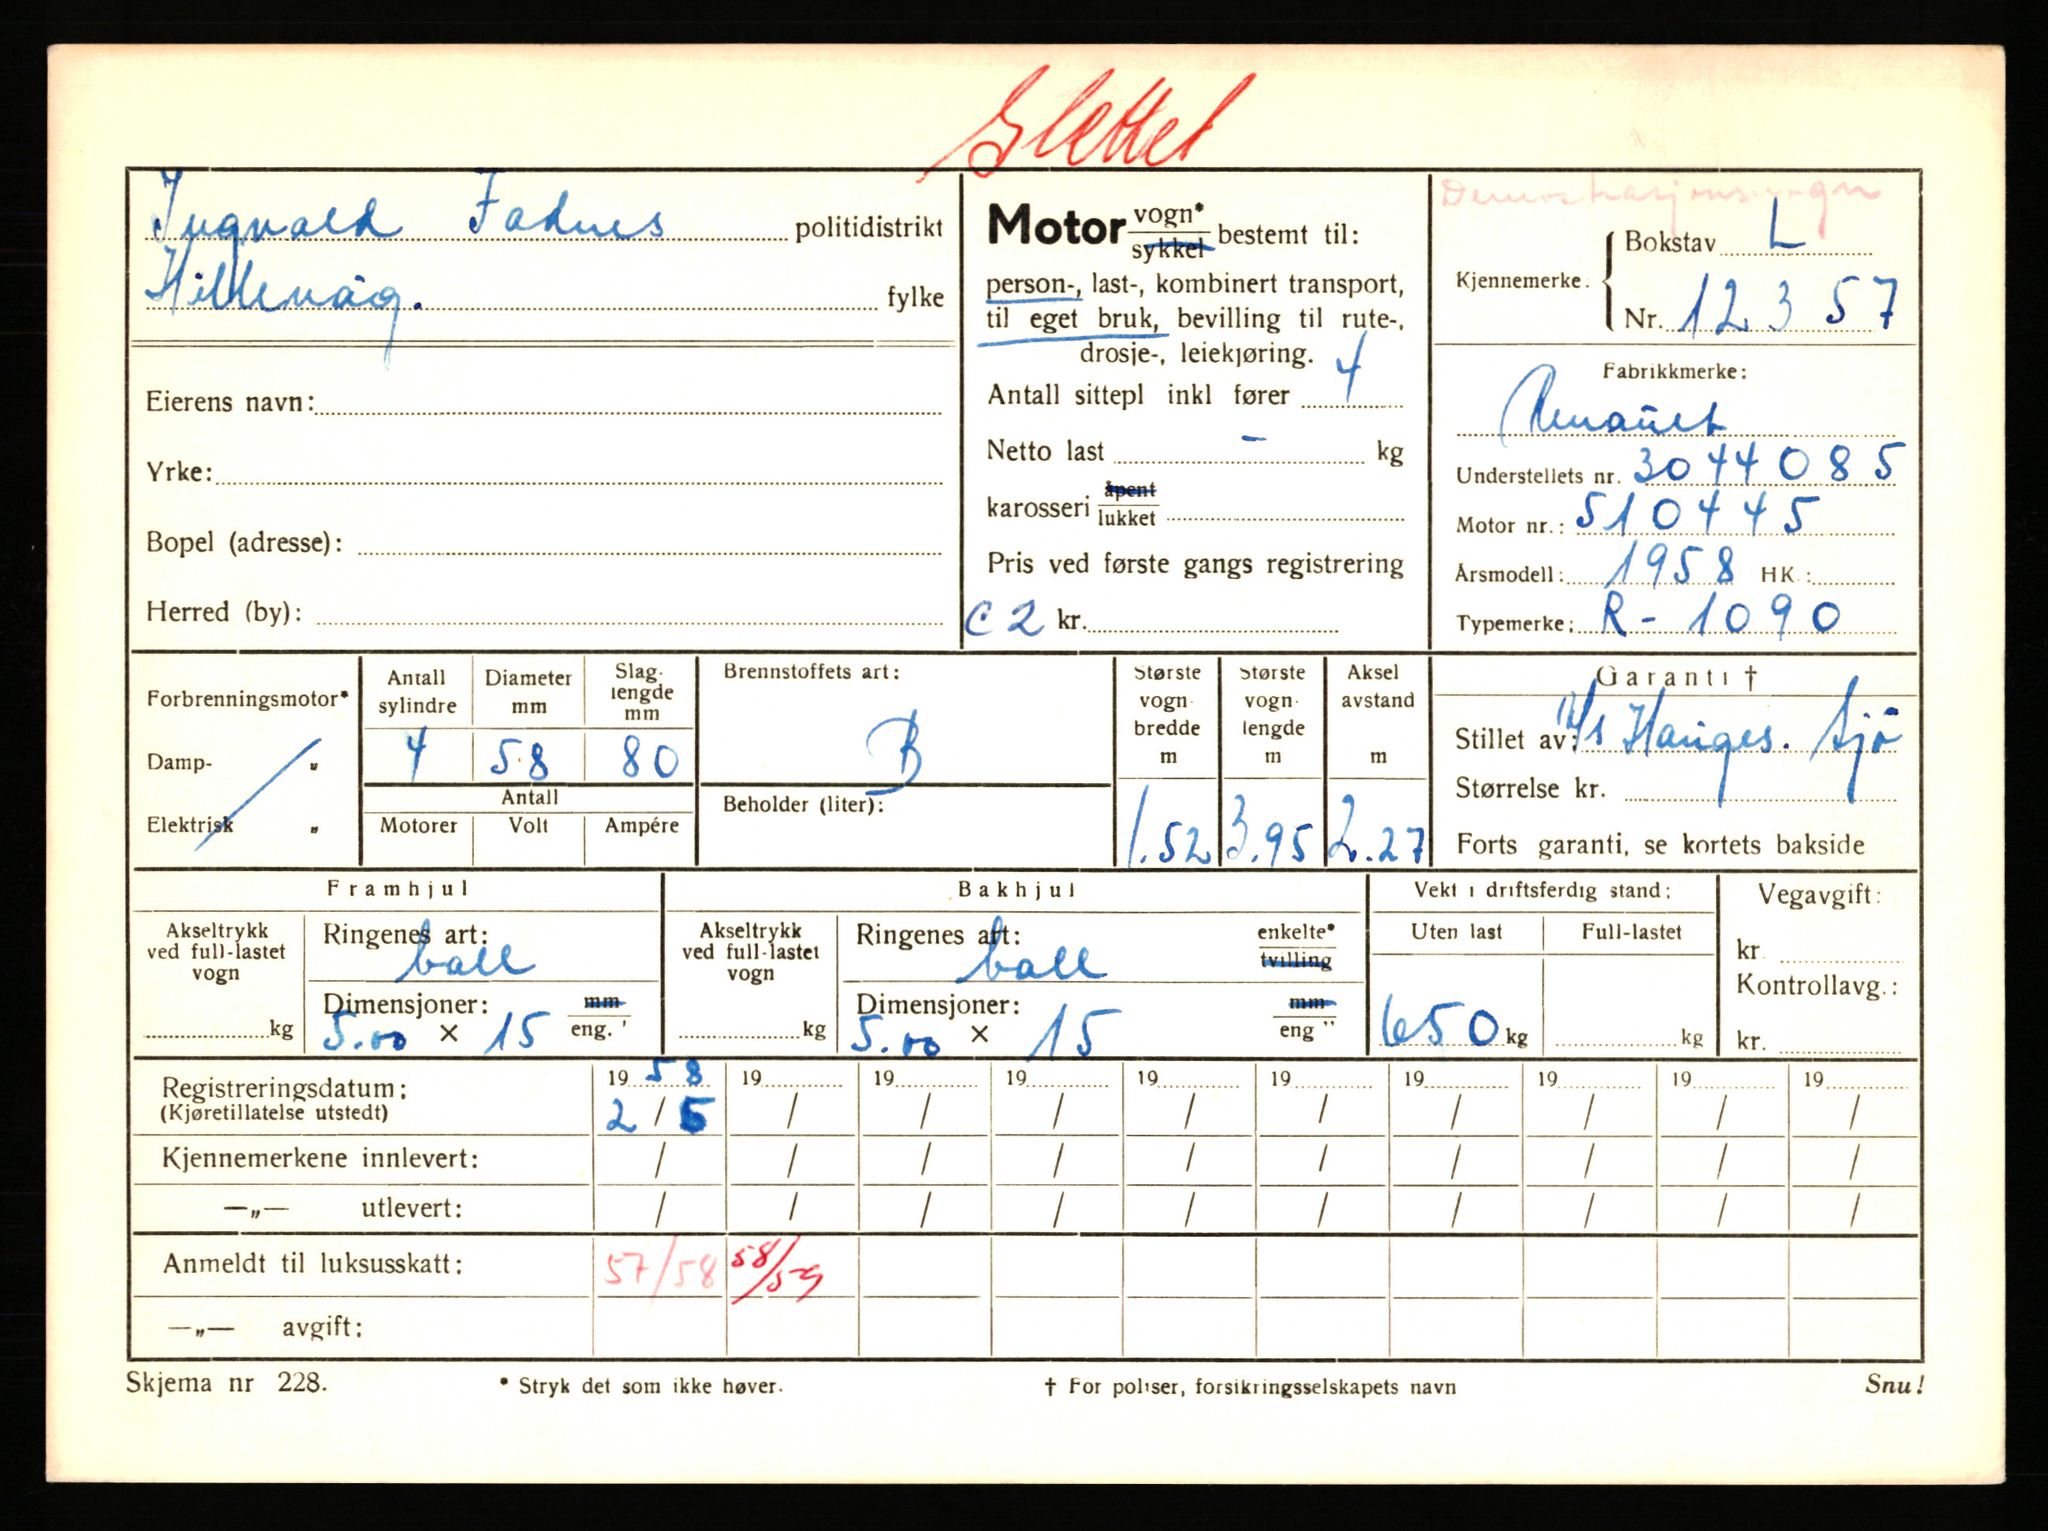 Slettet
Ingvald Fadnes politidistrikt
Hillevåg. fylke
Eierens navn:
Yrke:
Bopel (adresse):
Herred (by):
Motor vogn*
sykkel bestemt til:
person-, last-, kombinert transport,
til eget bruk, bevilling til rute-,
drosje-, leiekjøring.
Antall sittepl inkl fører 4
Netto last – kg
karosseri åpent
lukket
Pris ved første gangs registrering
C 2 kr.
Demostrasjonsvogn
Kjennemerke: Bokstav L
Nr. 12357
Fabrikkmerke:
Renault
Understellets nr. 3044085
Motor nr.: 510445
Årsmodell: 1958 HK:
Typemerke: R-1090
Forbrenningsmotor*
Damp- „
Elektrisk „
Antall sylindre 4
Diameter mm 58
Slag-lengde mm 80
Antall
Motorer Volt Ampére
Brennstoffets art:
B
Beholder (liter):
Største vogn-bredde m 1.52
Største vogn-lengde m 3.95
Aksel avstand m 2.27
Garanti †
Stillet av: Hauges. Sjö
Størrelse kr.
Forts garanti, se kortets bakside
Framhjul
Akseltrykk ved full-lastet vogn kg
Ringenes art: ball
Dimensjoner: mm
5.00 × 15 eng. '
Bakhjul
Akseltrykk ved full-lastet vogn kg
Ringenes art: ball enkelte*
tvilling
Dimensjoner: mm
5.00 × 15 eng "
Vekt i driftsferdig stand:
Uten last Full-lastet
650 kg kg
Vegavgift:
kr.
Kontrollavg.:
kr.
Registreringsdatum: 1958 19 19 19 19 19 19 19 19 19
(Kjøretillatelse utstedt) 2/5 / / / / / / / / /
Kjennemerkene innlevert: / / / / / / / / / /
—„— utlevert: / / / / / / / / / /
Anmeldt til luksusskatt: 57/58 58/59
—„— avgift:
Skjema nr 228. * Stryk det som ikke høver. † For poliser, forsikringsselskapets navn Snu!